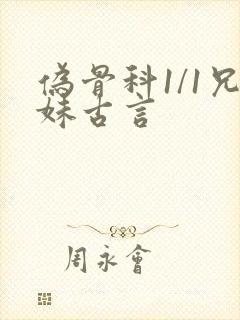 偽骨科1/1兄
妹古言
周永會